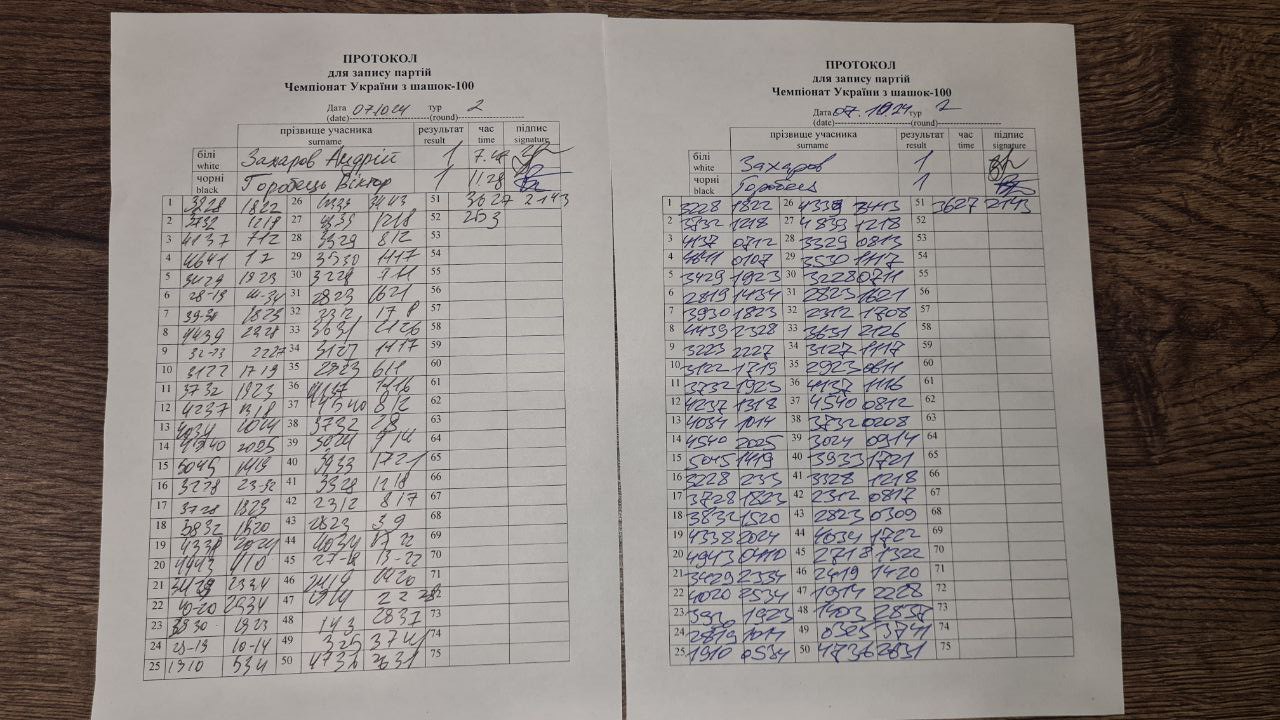 ПРОТОКОЛ
для запису партій
Чемпіонат України з шашок-100
Дата 071024 тур 2
(date) (round)
прізвище учасника результат час підпис
surname result time signature
білі Захаров Андрій 1
white
чорні Горобець Віктор 1 11.28
black
1 3228 1822 26 3443 51 3627 2143
2 3732 1218 27 1218 52
3 4137 712 28 3329 812 53
4 4641 17 29 3530 1117 54
5 3429 1923 30 3228 711 55
6 28-19 14-34 31 2823 1621 56
7 1823 32 2312 17 8 57
8 4439 2328 33 3631 2126 58
9 32-23 2227 34 3127 1117 59
10 3122 1719 35 2923 611 60
11 3732 1923 36 4137 1116 61
12 4237 1318 37 4540 812 62
13 4034 1014 38 3732 28 63
14 4540 2025 39 3024 914 64
15 5045 1419 40 3933 1721 65
16 3228 41 3328 1218 66
17 3728 1823 42 2312 817 67
18 3832 1520 43 2823 39 68
19 4338 2024 44 4034 69
20 410 45 27-18 13-22 70
21 3429 2334 46 2419 1420 71
22 40-20 2534 47 1914 22 28 72
23 3930 1923 48 143 2837 73
24 28-19 10-14 49 325 3741 74
25 1910 534 50 4736 2631 75
ПРОТОКОЛ
для запису партій
Чемпіонат України з шашок-100
Дата 07.1024 тур 2
(date) (round)
прізвище учасника результат час підпис
surname result time signature
білі Захаров 1
white
чорні Горобець 1
black
1 3228 1822 26 4339 3443 51 3627 2143
2 3732 1218 27 4839 1218 52
3 4137 0712 28 3329 0813 53
4 4641 0107 29 3530 1117 54
5 3429 1923 30 3228 0711 55
6 2819 1434 31 2823 1621 56
7 3930 1823 32 2312 1708 57
8 4439 2328 33 3631 2126 58
9 3223 2227 34 3127 1117 59
10 3122 1719 35 2923 0611 60
11 3732 1923 36 4137 1116 61
12 4237 1318 37 4540 0812 62
13 4034 1014 38 3732 0208 63
14 4540 2025 39 3024 0914 64
15 5045 1419 40 3933 1721 65
16 3228 41 3328 1218 66
17 3728 1823 42 2312 0817 67
18 3832 1520 43 2823 0309 68
19 4338 2024 44 4034 1722 69
20 4943 0410 45 2718 1322 70
21 3429 2334 46 2419 1420 71
22 4020 2534 47 1914 2228 72
23 1923 48 1403 2837 73
24 2819 1014 49 0325 3741 74
25 1910 0534 50 4736 2631 75